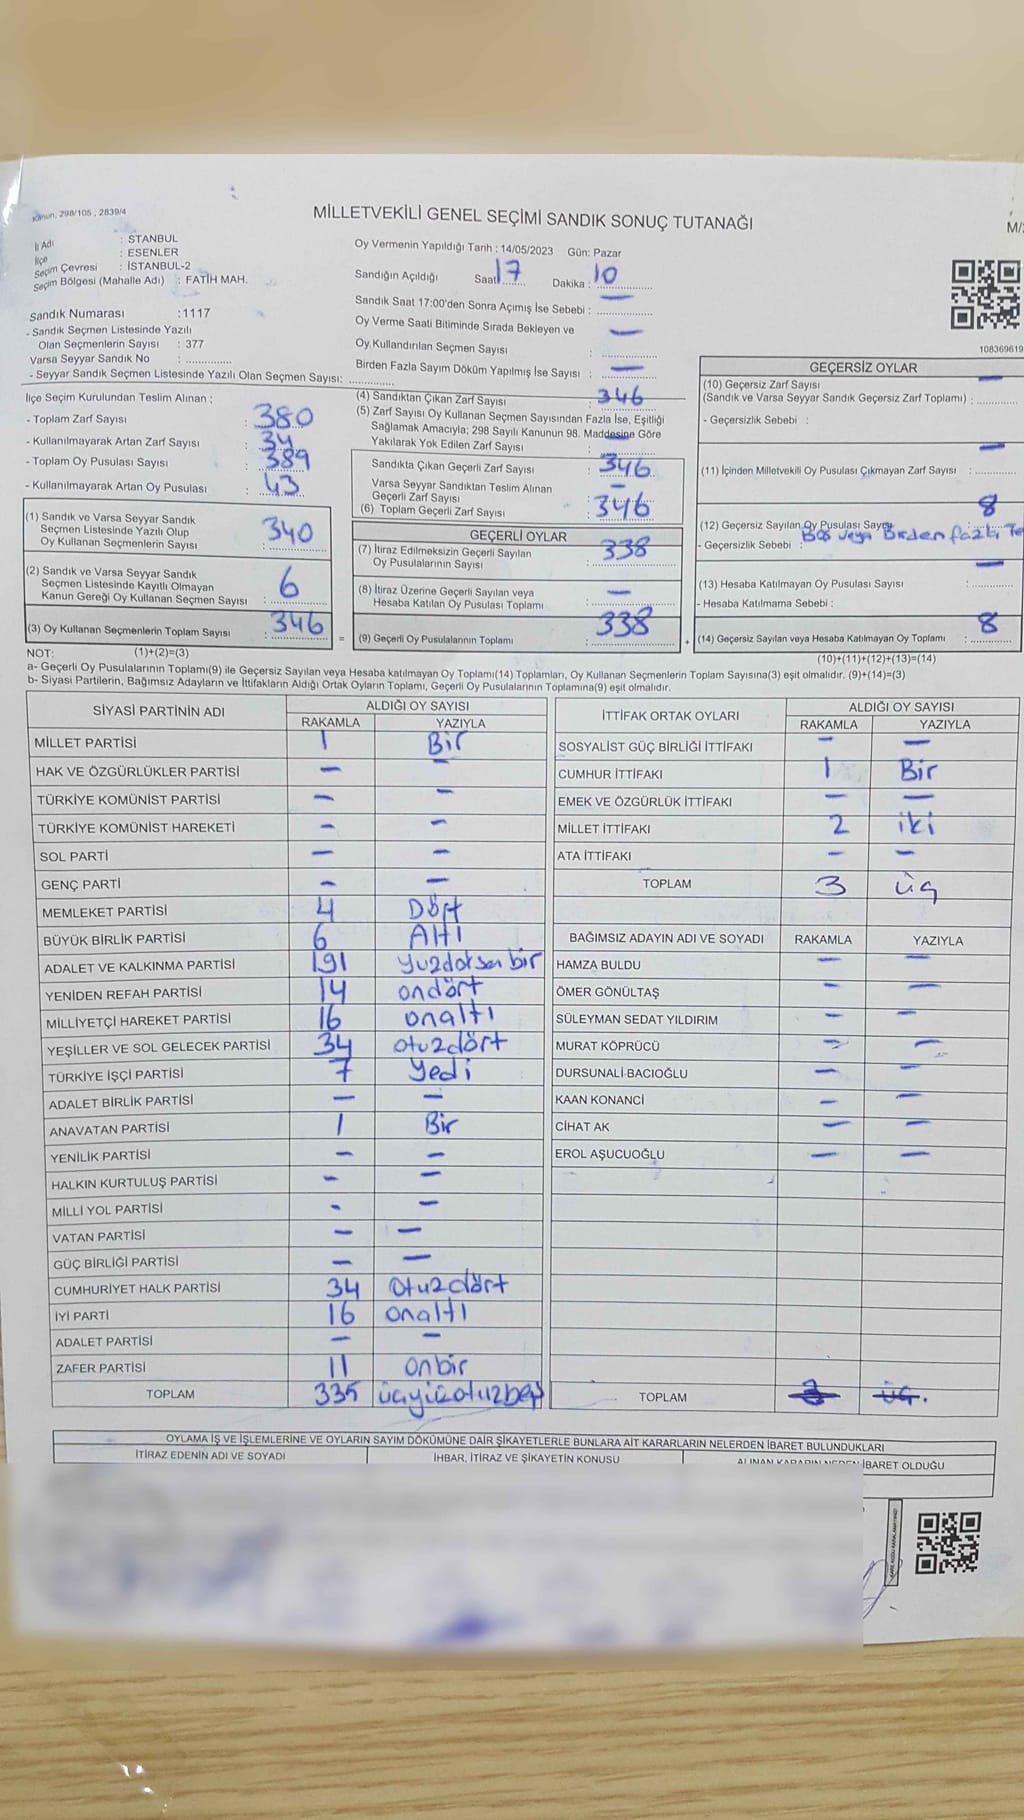 Kanun, 298/105 , 2839/4
MİLLETVEKİLİ GENEL SEÇİMİ SANDIK SONUÇ TUTANAĞI
İl Adı : STANBUL
İlçe : ESENLER
Seçim Çevresi : İSTANBUL-2
Seçim Bölgesi (Mahalle Adı) : FATİH MAH.
Sandık Numarası :1117
- Sandık Seçmen Listesinde Yazılı
Olan Seçmenlerin Sayısı : 377
Varsa Seyyar Sandık No :
- Seyyar Sandık Seçmen Listesinde Yazılı Olan Seçmen Sayısı:
Oy Vermenin Yapıldığı Tarih : 14/05/2023 Gün: Pazar
Sandığın Açıldığı Saat 17 Dakika : 10
Sandık Saat 17:00'den Sonra Açımış İse Sebebi : —
Oy Verme Saati Bitiminde Sırada Bekleyen ve
Oy Kullandırılan Seçmen Sayısı : —
Birden Fazla Sayım Döküm Yapılmış İse Sayısı : —
108369619
İlçe Seçim Kurulundan Teslim Alınan :
- Toplam Zarf Sayısı : 380
- Kullanılmayarak Artan Zarf Sayısı : 34
- Toplam Oy Pusulası Sayısı : 389
- Kullanılmayarak Artan Oy Pusulası : 43
(1) Sandık ve Varsa Seyyar Sandık
Seçmen Listesinde Yazılı Olup
Oy Kullanan Seçmenlerin Sayısı : 340
(2) Sandık ve Varsa Seyyar Sandık
Seçmen Listesinde Kayıtlı Olmayan
Kanun Gereği Oy Kullanan Seçmen Sayısı : 6
(3) Oy Kullanan Seçmenlerin Toplam Sayısı : 346 =
(4) Sandıktan Çıkan Zarf Sayısı : 346
(5) Zarf Sayısı Oy Kullanan Seçmen Sayısından Fazla İse, Eşitliği
Sağlamak Amacıyla; 298 Sayılı Kanunun 98. Maddesine Göre
Yakılarak Yok Edilen Zarf Sayısı : —
Sandıkta Çıkan Geçerli Zarf Sayısı : 346
Varsa Seyyar Sandıktan Teslim Alınan
Geçerli Zarf Sayısı : —
(6) Toplam Geçerli Zarf Sayısı : 346
GEÇERLİ OYLAR
(7) İtiraz Edilmeksizin Geçerli Sayılan
Oy Pusulalarının Sayısı : 338
(8) İtiraz Üzerine Geçerli Sayılan veya
Hesaba Katılan Oy Pusulası Toplamı : —
(9) Geçerli Oy Pusulalarının Toplamı : 338 +
GEÇERSİZ OYLAR
(10) Geçersiz Zarf Sayısı —
(Sandık ve Varsa Seyyar Sandık Geçersiz Zarf Toplamı) :
- Geçersizlik Sebebi :
(11) İçinden Milletvekili Oy Pusulası Çıkmayan Zarf Sayısı : —
(12) Geçersiz Sayılan Oy Pusulası Sayısı : 8
- Geçersizlik Sebebi : Boş veya Birden fazla
(13) Hesaba Katılmayan Oy Pusulası Sayısı : —
- Hesaba Katılmama Sebebi :
(14) Geçersiz Sayılan veya Hesaba Katılmayan Oy Toplamı : 8
NOT: (1)+(2)=(3) (10)+(11)+(12)+(13)=(14)
a- Geçerli Oy Pusulalarının Toplamı(9) ile Geçersiz Sayılan veya Hesaba katılmayan Oy Toplamı(14) Toplamları, Oy Kullanan Seçmenlerin Toplam Sayısına(3) eşit olmalıdır. (9)+(14)=(3)
b- Siyasi Partilerin, Bağımsız Adayların ve İttifakların Aldığı Ortak Oyların Toplamı, Geçerli Oy Pusulalarının Toplamına(9) eşit olmalıdır.
SİYASİ PARTİNİN ADI ALDIĞI OY SAYISI
RAKAMLA YAZIYLA
MİLLET PARTİSİ 1 Bir
HAK VE ÖZGÜRLÜKLER PARTİSİ — —
TÜRKİYE KOMÜNİST PARTİSİ — —
TÜRKİYE KOMÜNİST HAREKETİ — —
SOL PARTİ — —
GENÇ PARTİ — —
MEMLEKET PARTİSİ 4 Dört
BÜYÜK BİRLİK PARTİSİ 6 Altı
ADALET VE KALKINMA PARTİSİ 191 yüzdoksan bir
YENİDEN REFAH PARTİSİ 14 ondört
MİLLİYETÇİ HAREKET PARTİSİ 16 onaltı
YEŞİLLER VE SOL GELECEK PARTİSİ 34 otuzdört
TÜRKİYE İŞÇİ PARTİSİ 7 Yedi
ADALET BİRLİK PARTİSİ — —
ANAVATAN PARTİSİ 1 Bir
YENİLİK PARTİSİ — —
HALKIN KURTULUŞ PARTİSİ — —
MİLLİ YOL PARTİSİ — —
VATAN PARTİSİ — —
GÜÇ BİRLİĞİ PARTİSİ — —
CUMHURİYET HALK PARTİSİ 34 otuzdört
İYİ PARTİ 16 onaltı
ADALET PARTİSİ — —
ZAFER PARTİSİ 11 onbir
TOPLAM 335 üçyüzotuzbeş
İTTİFAK ORTAK OYLARI ALDIĞI OY SAYISI
RAKAMLA YAZIYLA
SOSYALİST GÜÇ BİRLİĞİ İTTİFAKI — —
CUMHUR İTTİFAKI 1 Bir
EMEK VE ÖZGÜRLÜK İTTİFAKI — —
MİLLET İTTİFAKI 2 iki
ATA İTTİFAKI — —
TOPLAM 3 üç
BAĞIMSIZ ADAYIN ADI VE SOYADI RAKAMLA YAZIYLA
HAMZA BULDU — —
ÖMER GÖNÜLTAŞ — —
SÜLEYMAN SEDAT YILDIRIM — —
MURAT KÖPRÜCÜ — —
DURSUNALİ BACIOĞLU — —
KAAN KONANCİ — —
CİHAT AK — —
EROL AŞUCUOĞLU — —
TOPLAM 3 üç.
OYLAMA İŞ VE İŞLEMLERİNE VE OYLARIN SAYIM DÖKÜMÜNE DAİR ŞİKAYETLERLE BUNLARA AİT KARARLARIN NELERDEN İBARET BULUNDUKLARI
İTİRAZ EDENİN ADI VE SOYADI İHBAR, İTİRAZ VE ŞİKAYETİN KONUSU ALINAN KARARIN NEDEN İBARET OLDUĞU